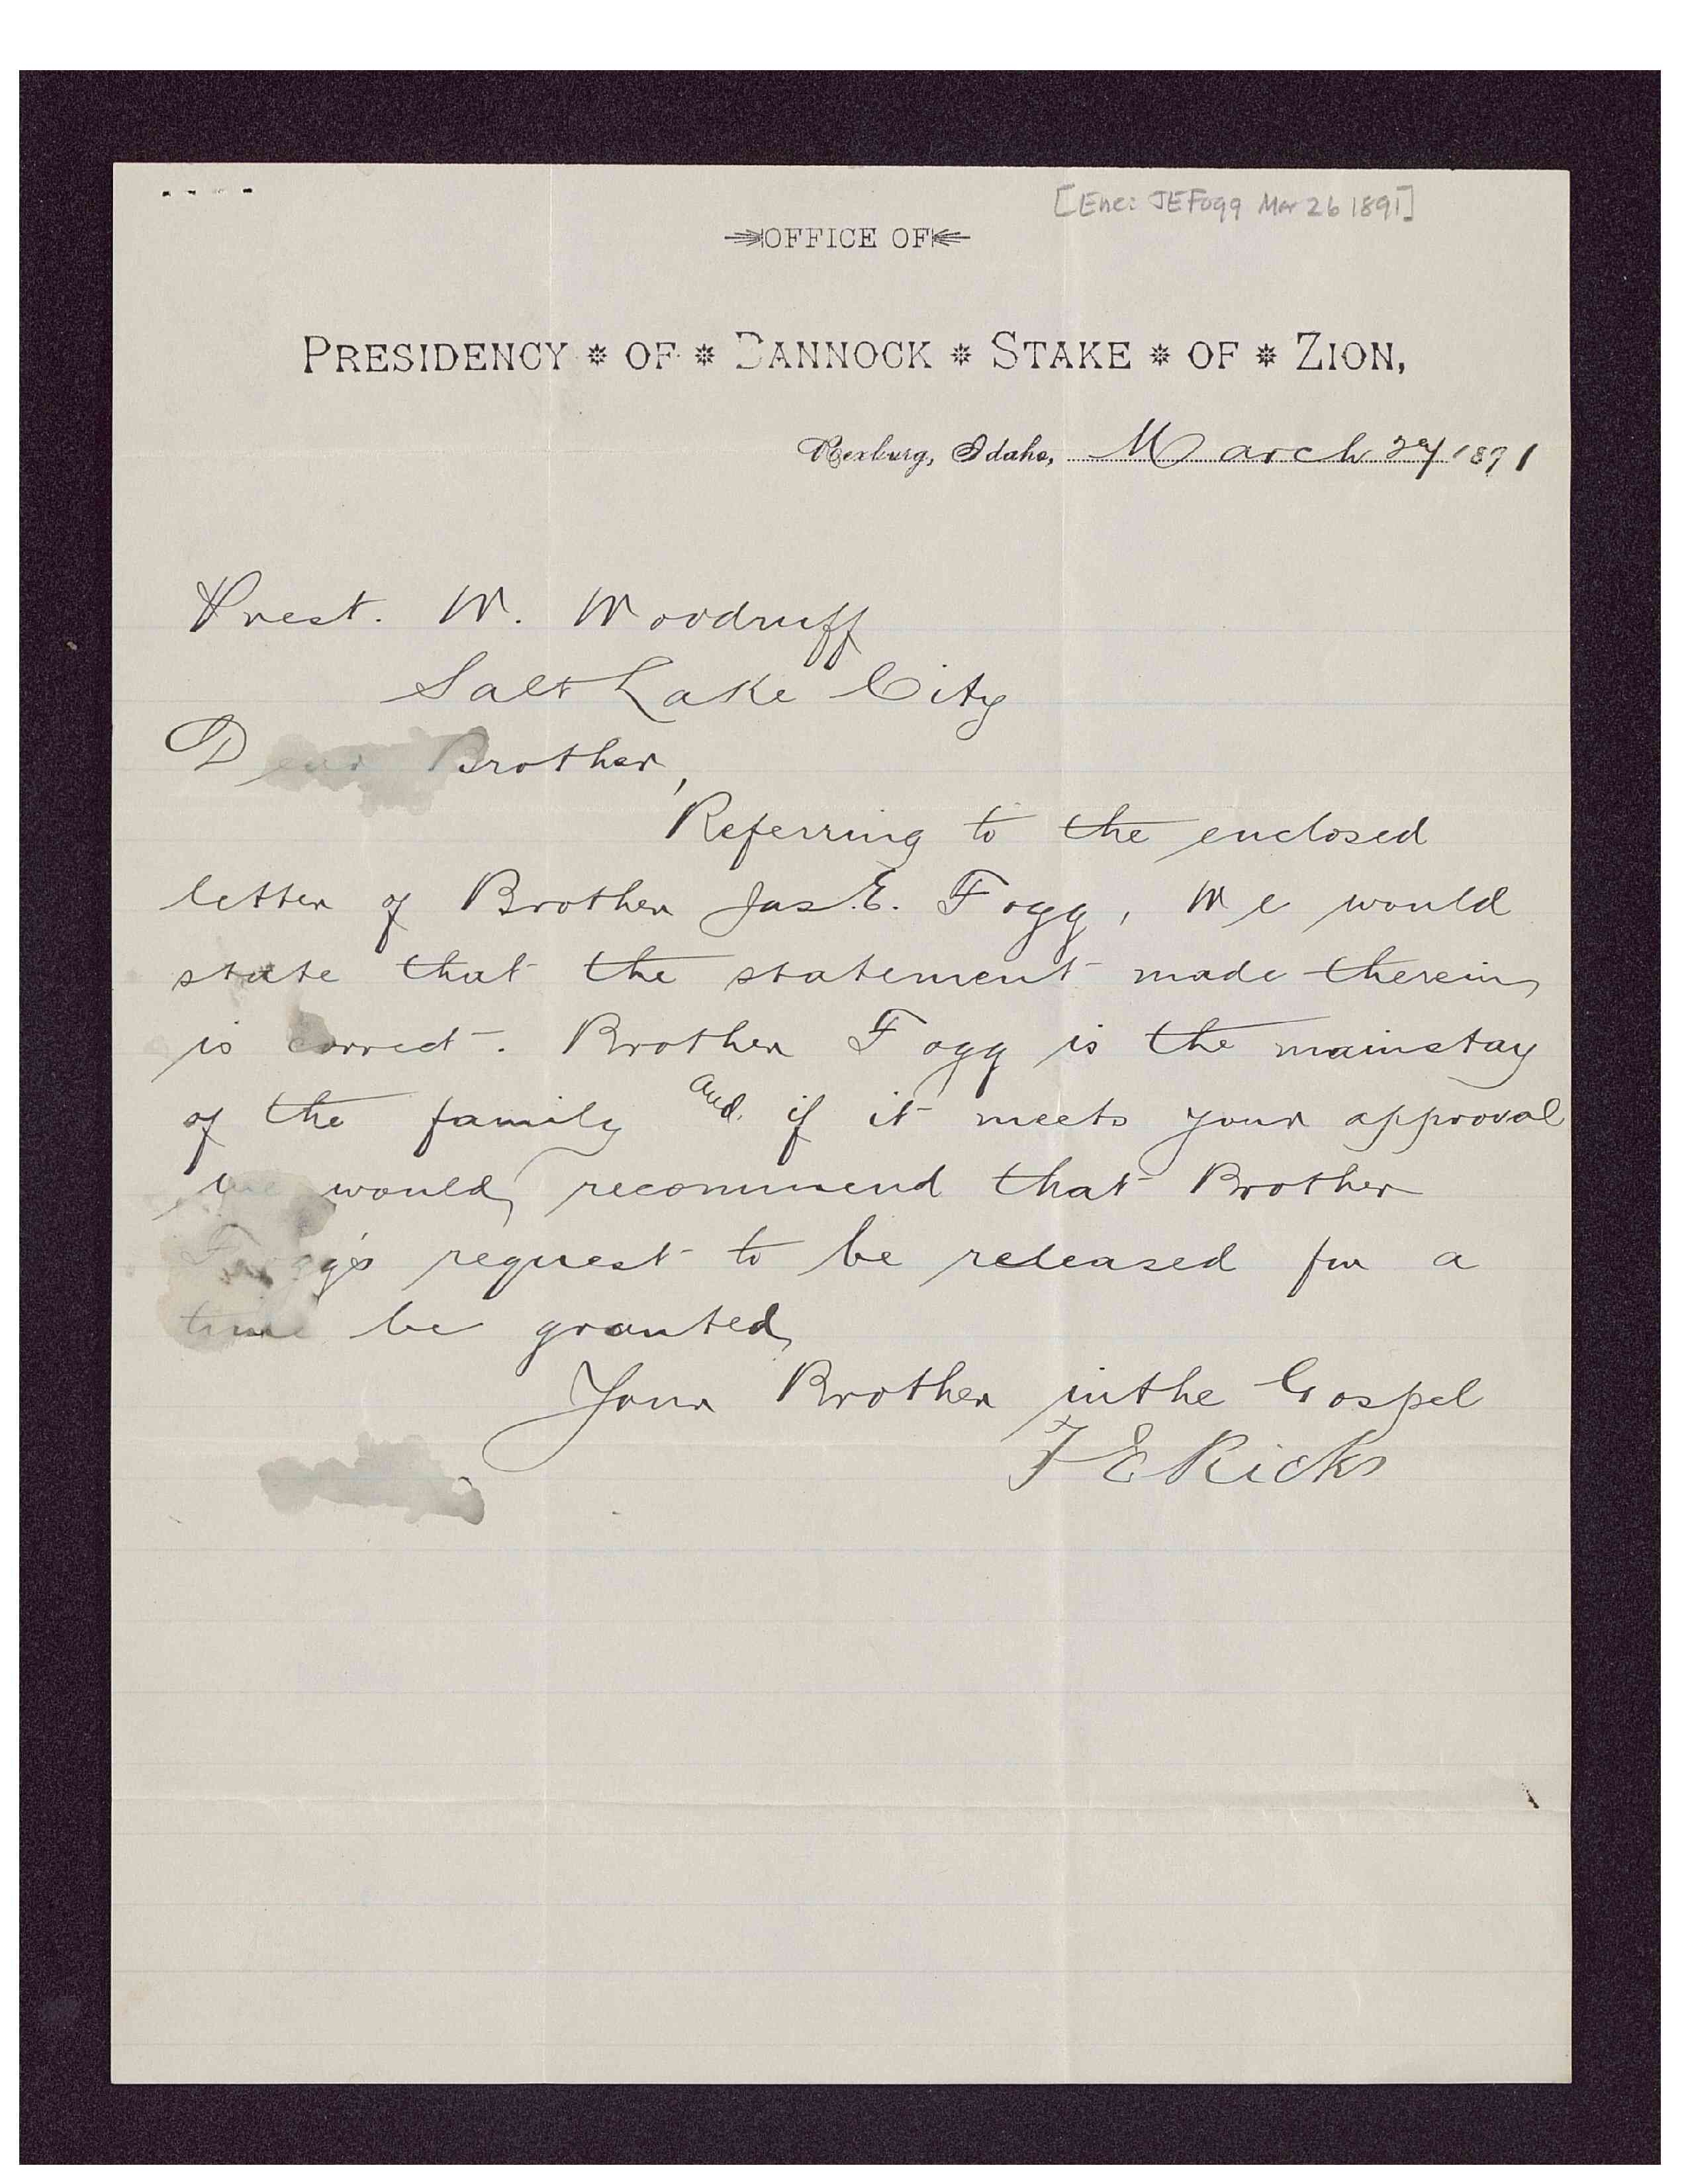 [Enc: JEFogg Mar 26 1891]
OFFICE OF
PRESIDENCY * OF * BANNOCK * STAKE * OF * ZION,
Rexburg, Idaho, March 1891
Prest. W. Woodruff
Salt Lake City
Dear Brother,
Referring to the enclosed
letter of Brother Jas. E. Fogg, We would
state that the statement made therein
is correct. Brother Fogg is the mainstay
of the family and if it meets your approval
we would recommend that Brother
Fogg's request to be released for a
time be granted,
Your Brother in the Gospel
T E Ricks